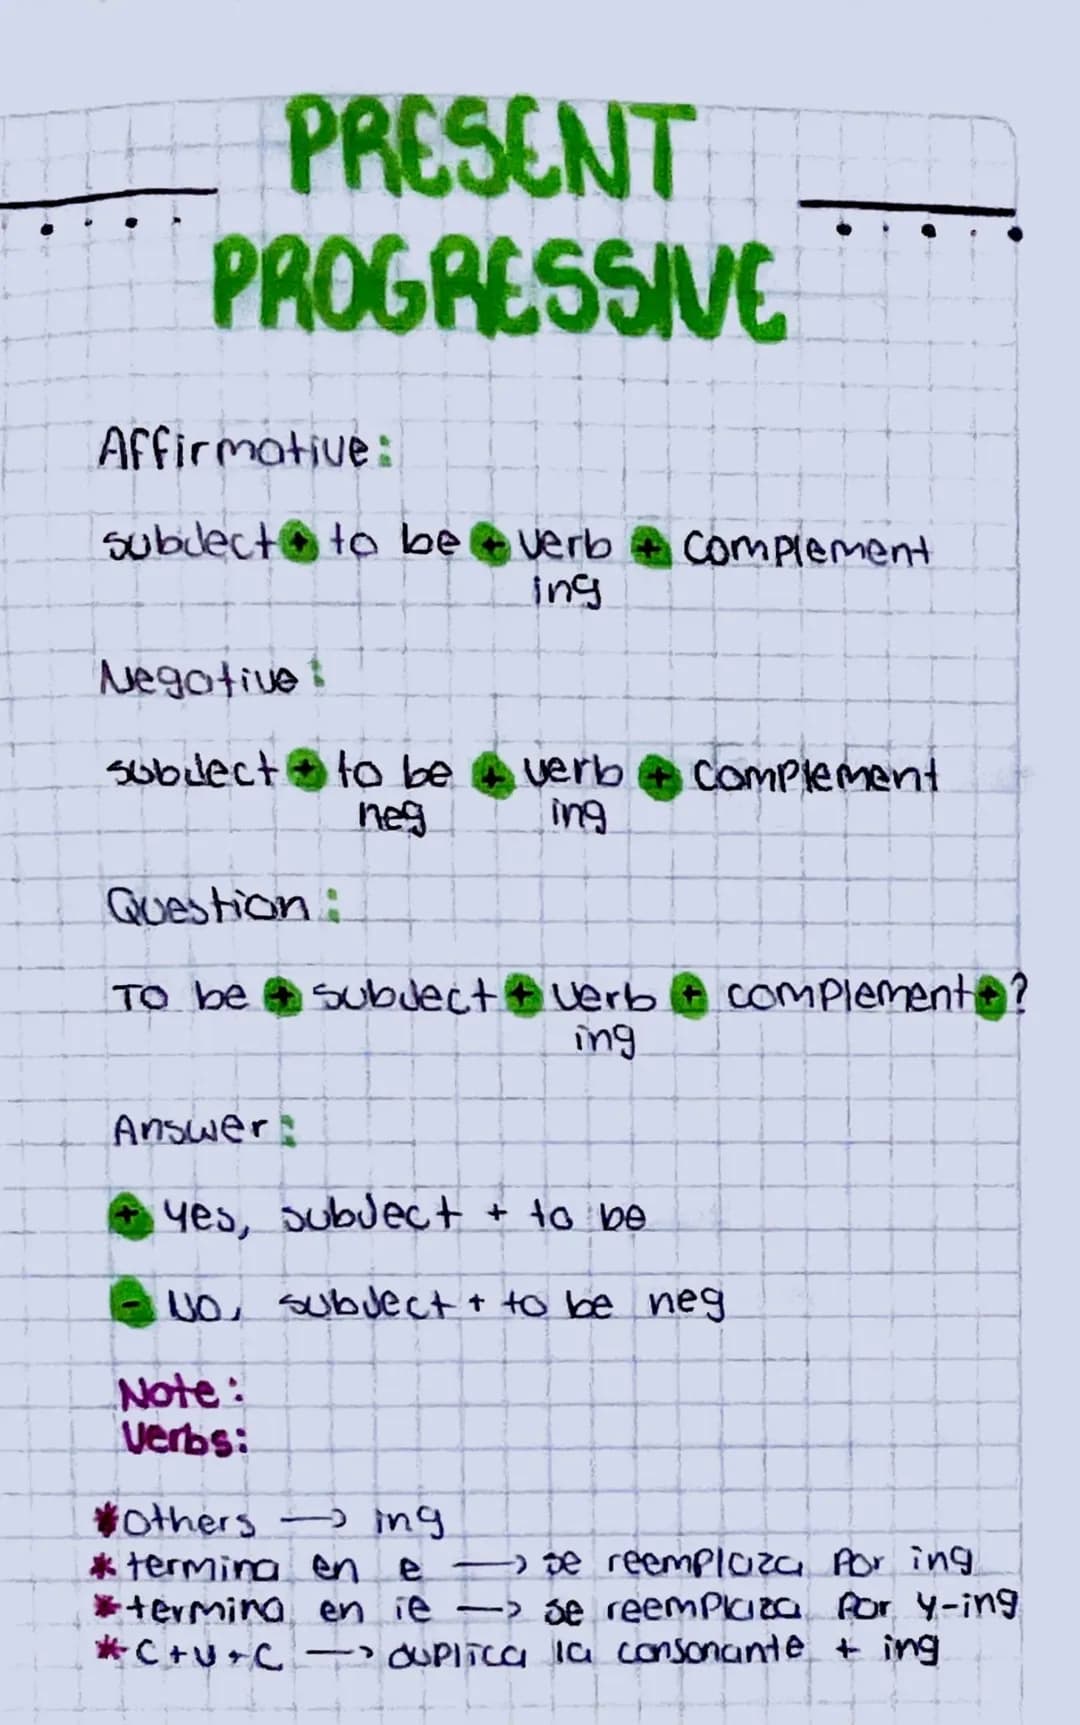 PRESENT
PROGRESSIVE
Affirmative:
subject + to be + verb + complement
ing
Negative:
subject + to be + verb + complement
neg ing
Question:
To be + subject + verb + complement + ?
ing
Answer:
+ yes, subject + to be
- No, subject + to be neg
Note:
Verbs:
*others → ing
*termina en e → se reemplaza por ing
*termina en ie → se reemplaza por y-ing
*C+V+C → duplica la consonante + ing